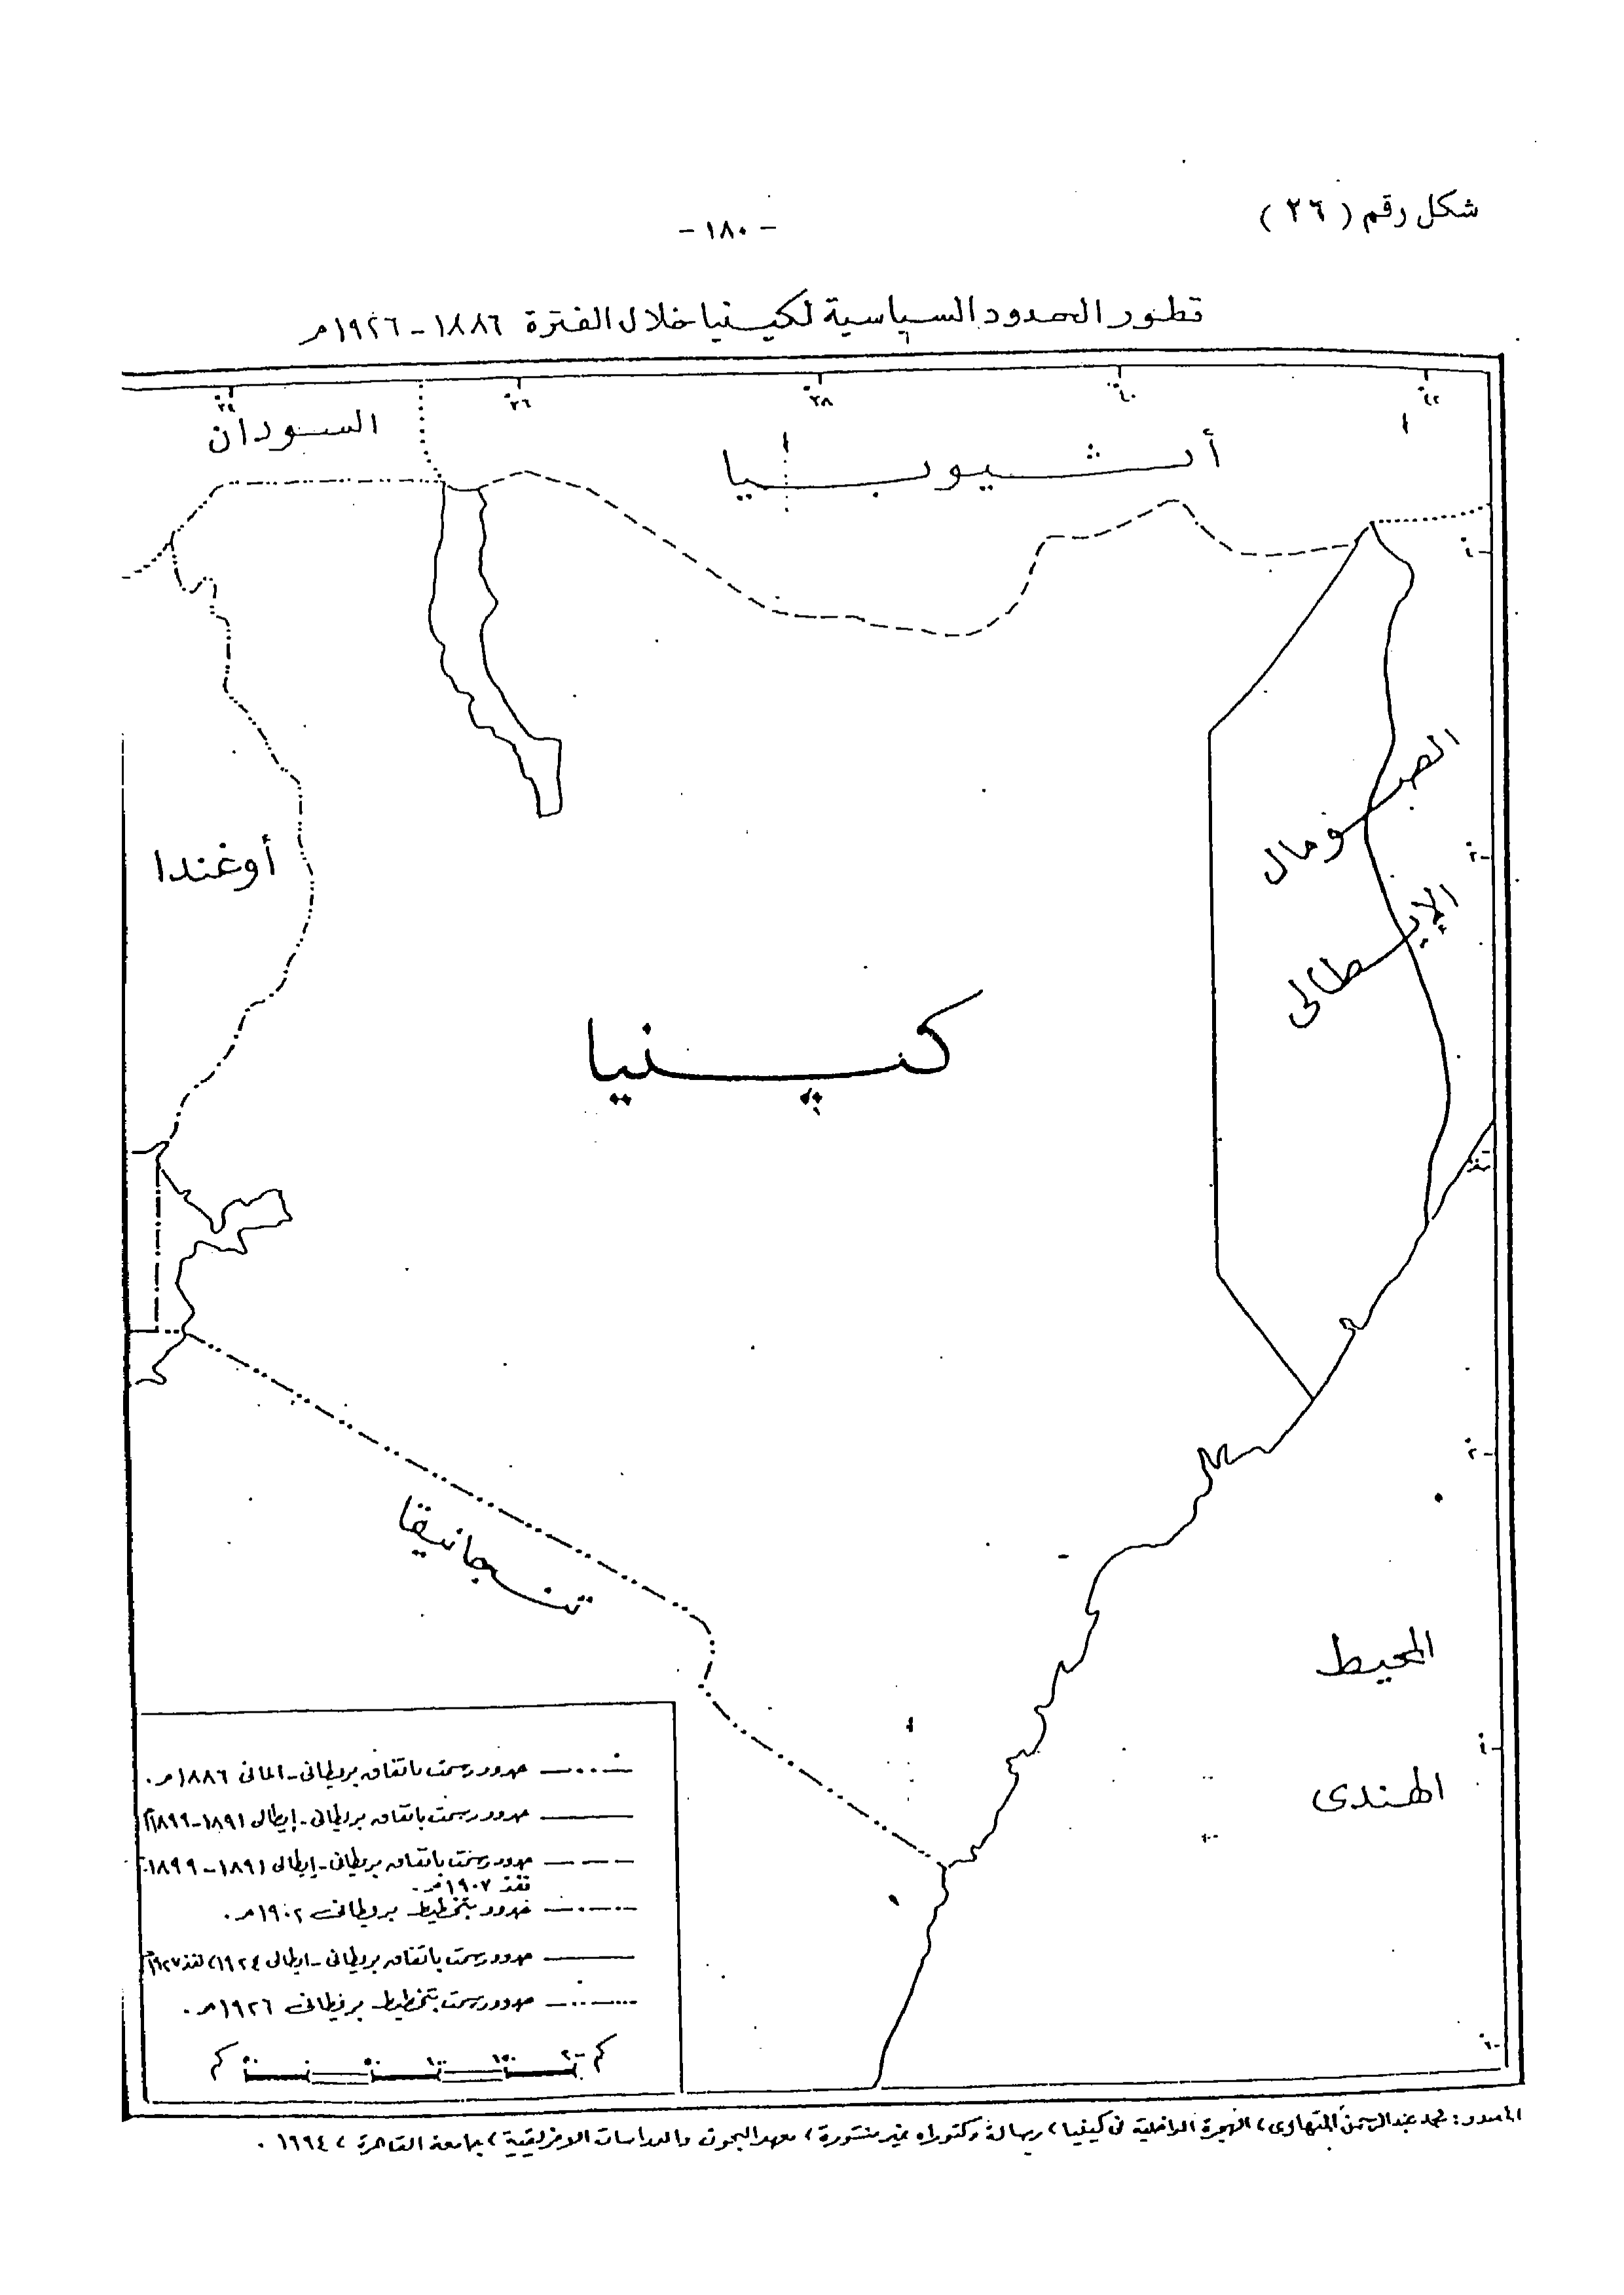 شكل رقم (٢٦)
- ١٨٠ -
تطور الحدود السياسية لكينيا خلال الفترة ١٨٨٦ - ١٩٢٦م
٣٤ ٣٦ ٣٨ ٤٠ ٤٢
السودان
أثيوبيا
٤
الصومال
الإيطالى
٢
أوغندا
كينيا
صفر
٢
تنجانيقا
المحيط
الهندى
٤
٦
حدود رسمت باتفاق بريطانى - المانى ١٨٨٦م.
حدود رسمت باتفاق بريطانى - إيطالى ١٨٩١ - ١٨٩٩م
حدود رسمت باتفاق بريطانى - إيطالى ١٨٩١ - ١٨٩٩.
نفذ ١٩٠٧م.
حدود بتخطيط بريطانى ١٩٠٢م.
حدود رسمت باتفاق بريطانى - ايطالى ١٩٢٤، نفذ ١٩٢٧م
حدود رسمت بتخطيط بريطانى ١٩٢٦م.
كم ٢٠٠ ١٥٠ ١٠٠ ٥٠ ٥٠ كم
المصدر: محمد عبد الرحمن، الهجرة الداخلية فى كينيا، رسالة دكتوراه غير منشورة، معهد البحوث والدراسات الافريقية، جامعة القاهرة، ١٩٩٤.